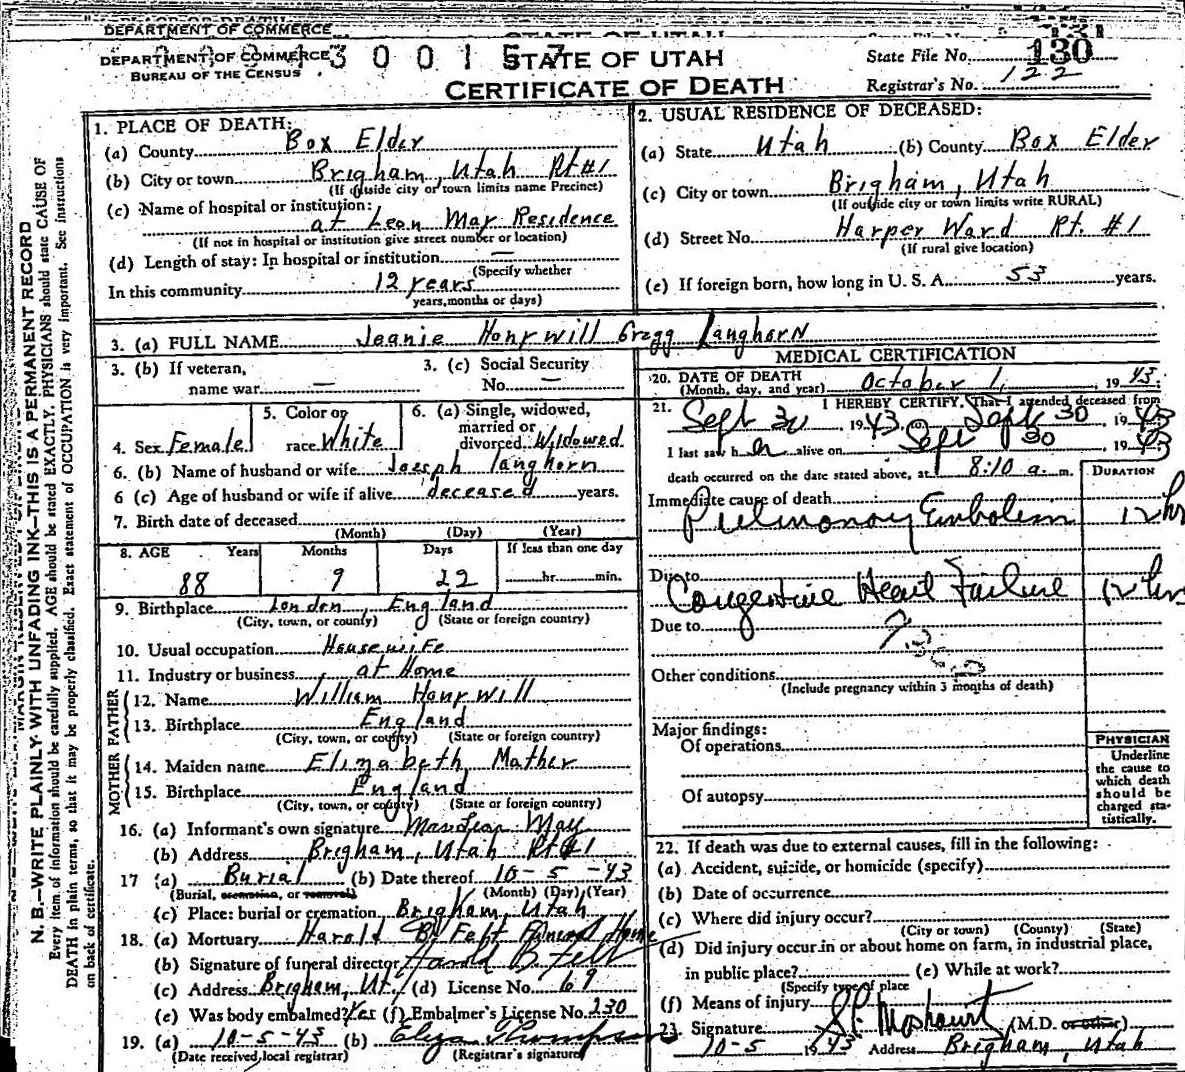 DEPARTMENT OF COMMERCE
DEPARTMENT OF COMMERCE
BUREAU OF THE CENSUS
STATE OF UTAH
CERTIFICATE OF DEATH
State File No. 130
Registrar's No. 122
N. B.—WRITE PLAINLY WITH UNFADING INK—THIS IS A PERMANENT RECORD
Every item of information should be carefully supplied. AGE should be stated EXACTLY. PHYSICIANS should state CAUSE OF
DEATH in plain terms, so that it may be properly classified. Exact statement of OCCUPATION is very important. See instructions
on back of certificate.
1. PLACE OF DEATH:
(a) County Box Elder
(b) City or town Brigham, Utah Rt #1
(If outside city or town limits name Precinct)
(c) Name of hospital or institution:
at Leon May Residence
(If not in hospital or institution give street number or location)
(d) Length of stay: In hospital or institution —
(Specify whether
In this community 12 years
years, months or days)
2. USUAL RESIDENCE OF DECEASED:
(a) State Utah (b) County Box Elder
(c) City or town Brigham, Utah
(If outside city or town limits write RURAL)
(d) Street No. Harper Ward Rt. #1
(If rural give location)
(e) If foreign born, how long in U. S. A. 53 years.
3. (a) FULL NAME Jeanie Honywill Gregg Langhorn
3. (b) If veteran,
name war —
3. (c) Social Security
No. —
4. Sex Female
5. Color or
race White
6. (a) Single, widowed,
married or
divorced Widowed
6. (b) Name of husband or wife Joesph Langhorn
6 (c) Age of husband or wife if alive deceased years.
7. Birth date of deceased
(Month) (Day) (Year)
8. AGE Years Months Days If less than one day
88 9 22 hr. min.
9. Birthplace London, England
(City, town, or county) (State or foreign country)
10. Usual occupation Housewife
11. Industry or business at Home
FATHER
12. Name William Honywill
13. Birthplace England
(City, town, or county) (State or foreign country)
MOTHER
14. Maiden name Elizabeth Mather
15. Birthplace England
(City, town, or county) (State or foreign country)
16. (a) Informant's own signature Mrs Leon May
(b) Address Brigham, Utah Rt #1
17 (a) Burial (b) Date thereof 10-5-43
(Burial, cremation, or removal) (Month) (Day) (Year)
(c) Place: burial or cremation Brigham, Utah
18. (a) Mortuary Harold B. Felt Funeral Home
(b) Signature of funeral director Harold B. Felt
(c) Address Brigham, Ut. (d) License No. 69
(e) Was body embalmed? Yes (f) Embalmer's License No. 230
19. (a) 10-5-43 (b) Eliza Thompson
(Date received, local registrar) (Registrar's signature)
MEDICAL CERTIFICATION
20. DATE OF DEATH
(Month, day, and year) October 1, 1943.
21. I HEREBY CERTIFY, That I attended deceased from
Sept 30, 1943, to Sept 30, 1943
I last saw her alive on Sept 30 1943
death occurred on the date stated above, at 8:10 a. m.
DURATION
Immediate cause of death
Pulmonary Embolism 12 hr
Due to
Congestive Heart Failure 12 hrs
Due to
Other conditions
(Include pregnancy within 3 months of death)
Major findings:
Of operations
Of autopsy
PHYSICIAN
Underline
the cause to
which death
should be
charged sta-
tistically.
22. If death was due to external causes, fill in the following:
(a) Accident, suicide, or homicide (specify)
(b) Date of occurrence
(c) Where did injury occur?
(City or town) (County) (State)
(d) Did injury occur in or about home on farm, in industrial place,
in public place? (e) While at work?
(Specify type of place
(f) Means of injury
23. Signature (M.D. or other)
10-5 1943 Address Brigham, Utah